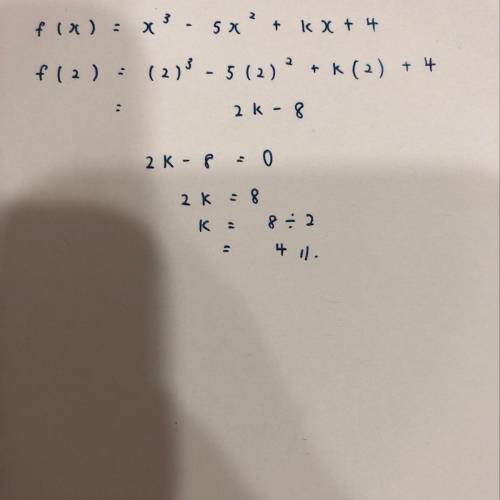 f(x) = x³ - 5x² + kx + 4
f(2) = (2)³ - 5(2)² + k(2) + 4
= 2k - 8
2k - 8 = 0
2k = 8
k = 8 ÷ 2
= 4 //.